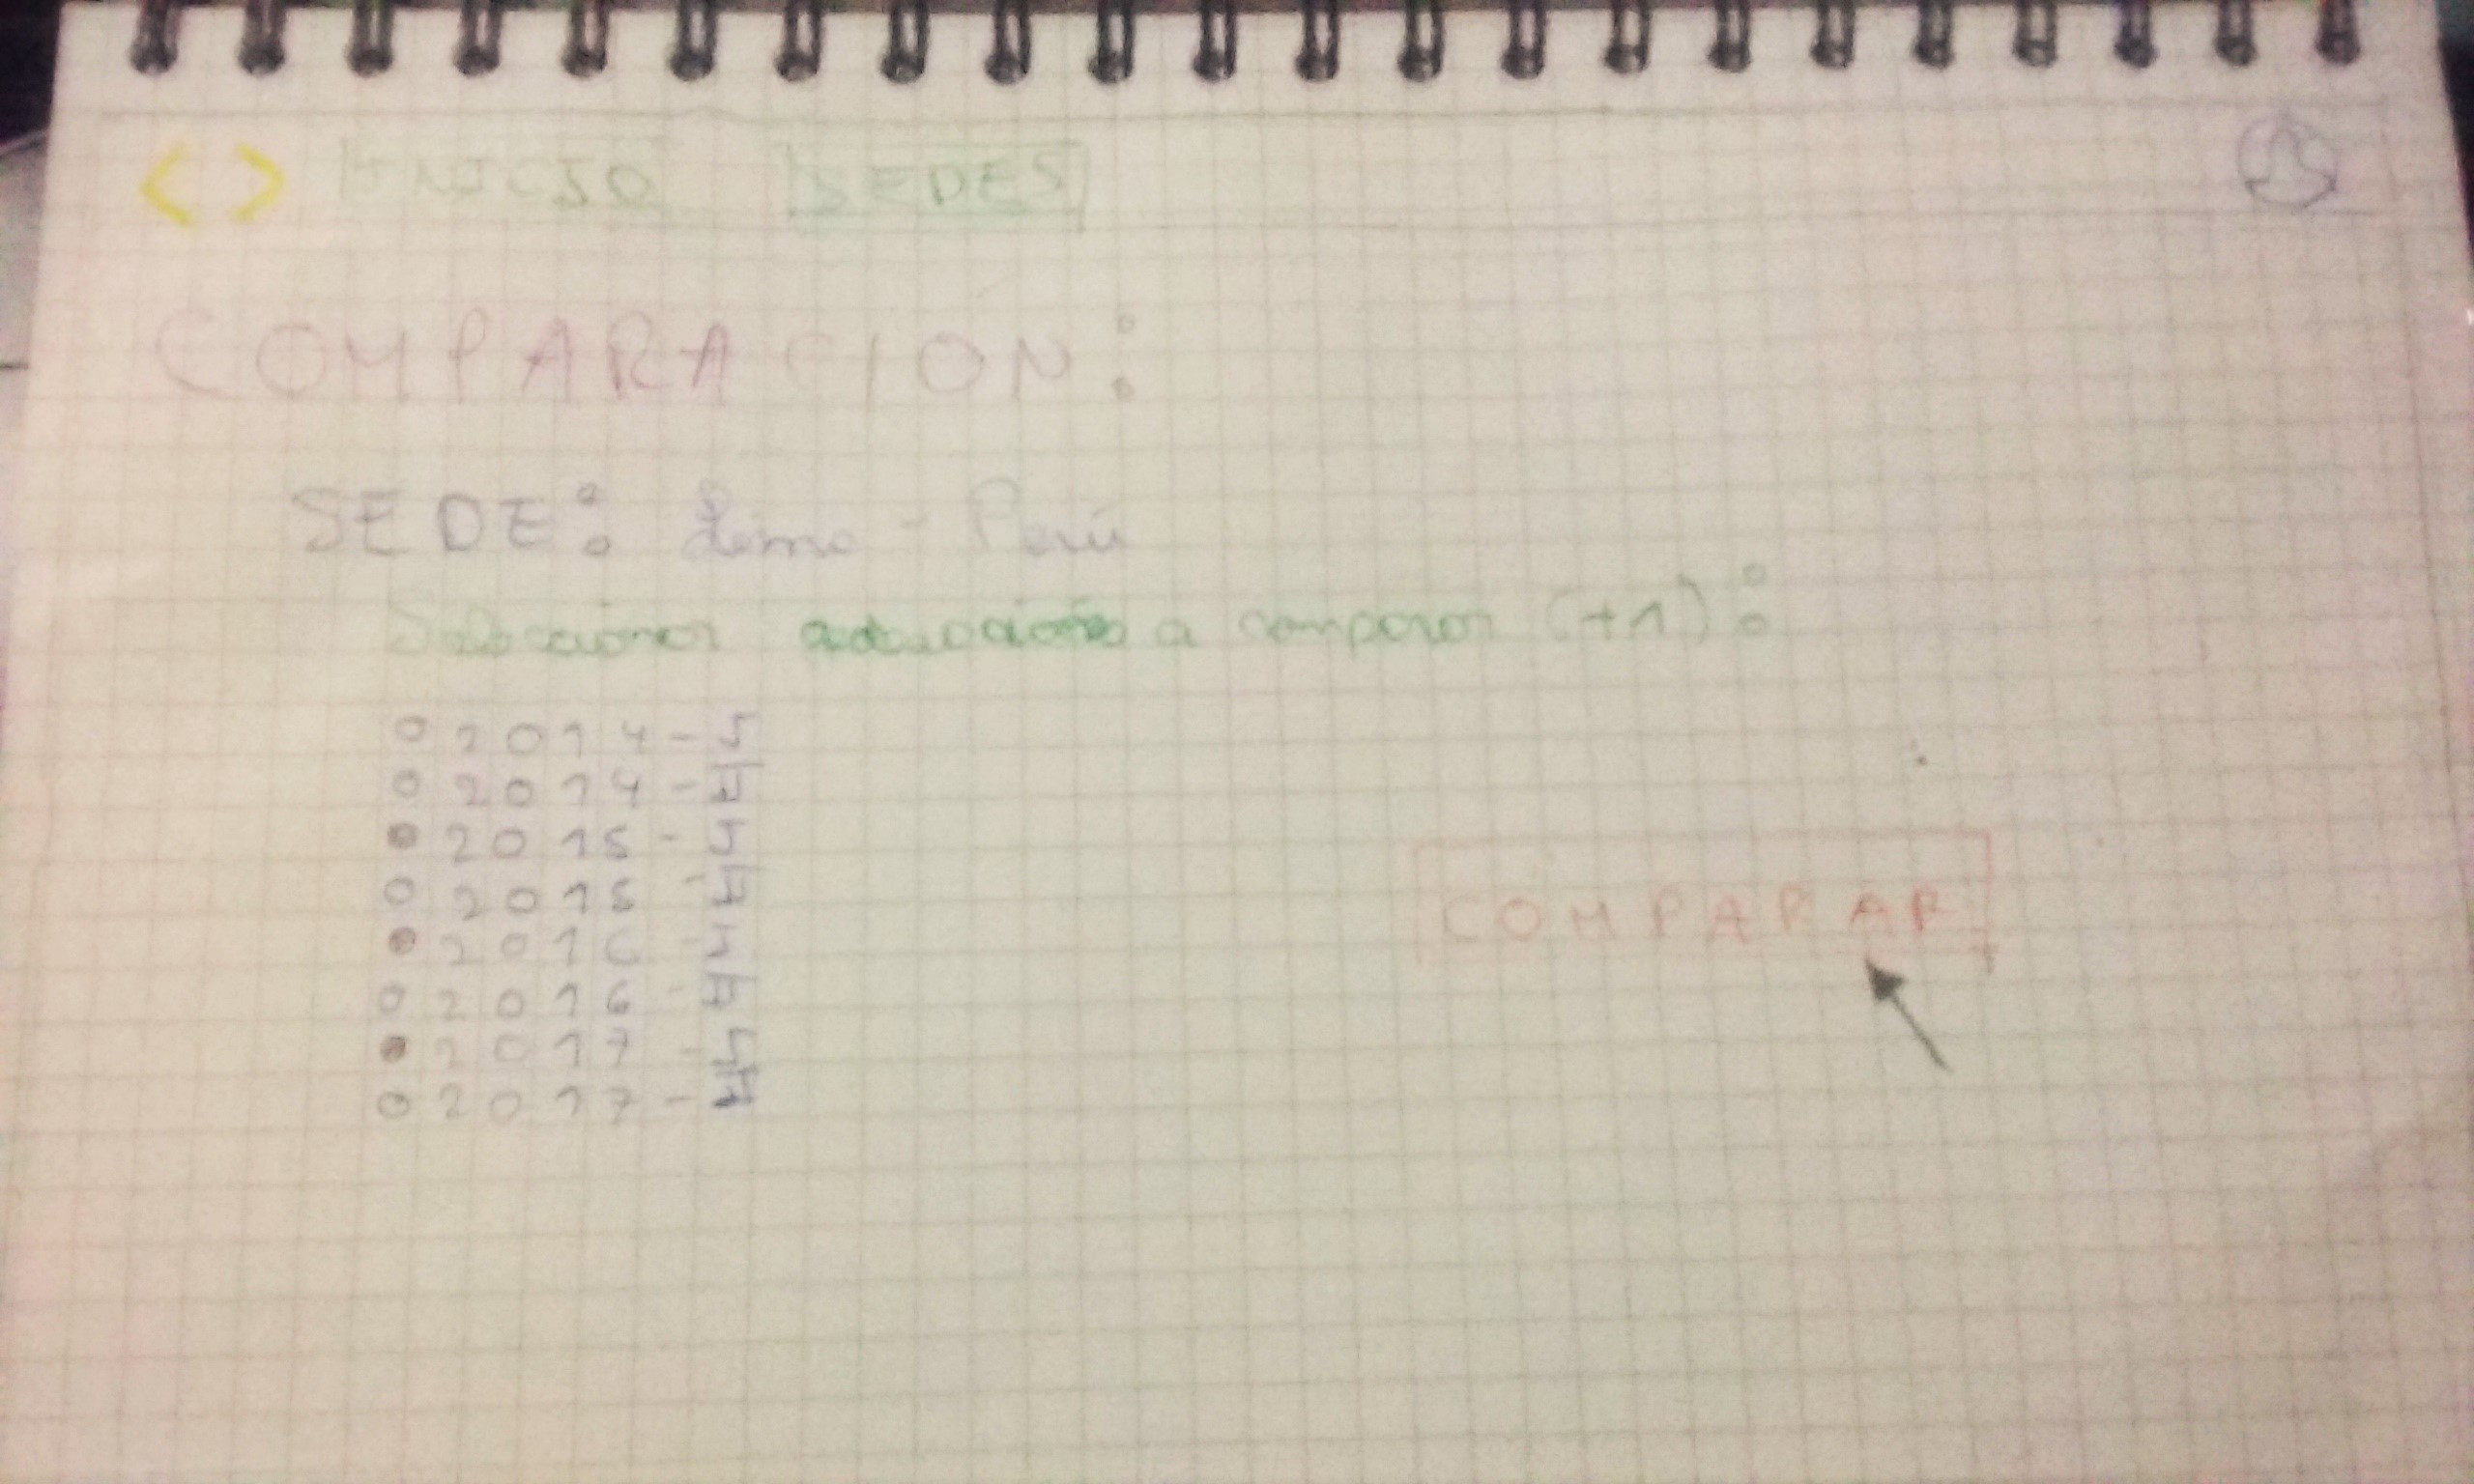 < > INICIO SEDES
COMPARACIÓN:
SEDE: Lima - Perú
Seleccionar a comparar (+1):
○ 2014 -
○ 2014 -
● 2015 -
○ 2015 -
● 2016 -
○ 2016 -
● 2017 -
○ 2017 -
COMPARAR